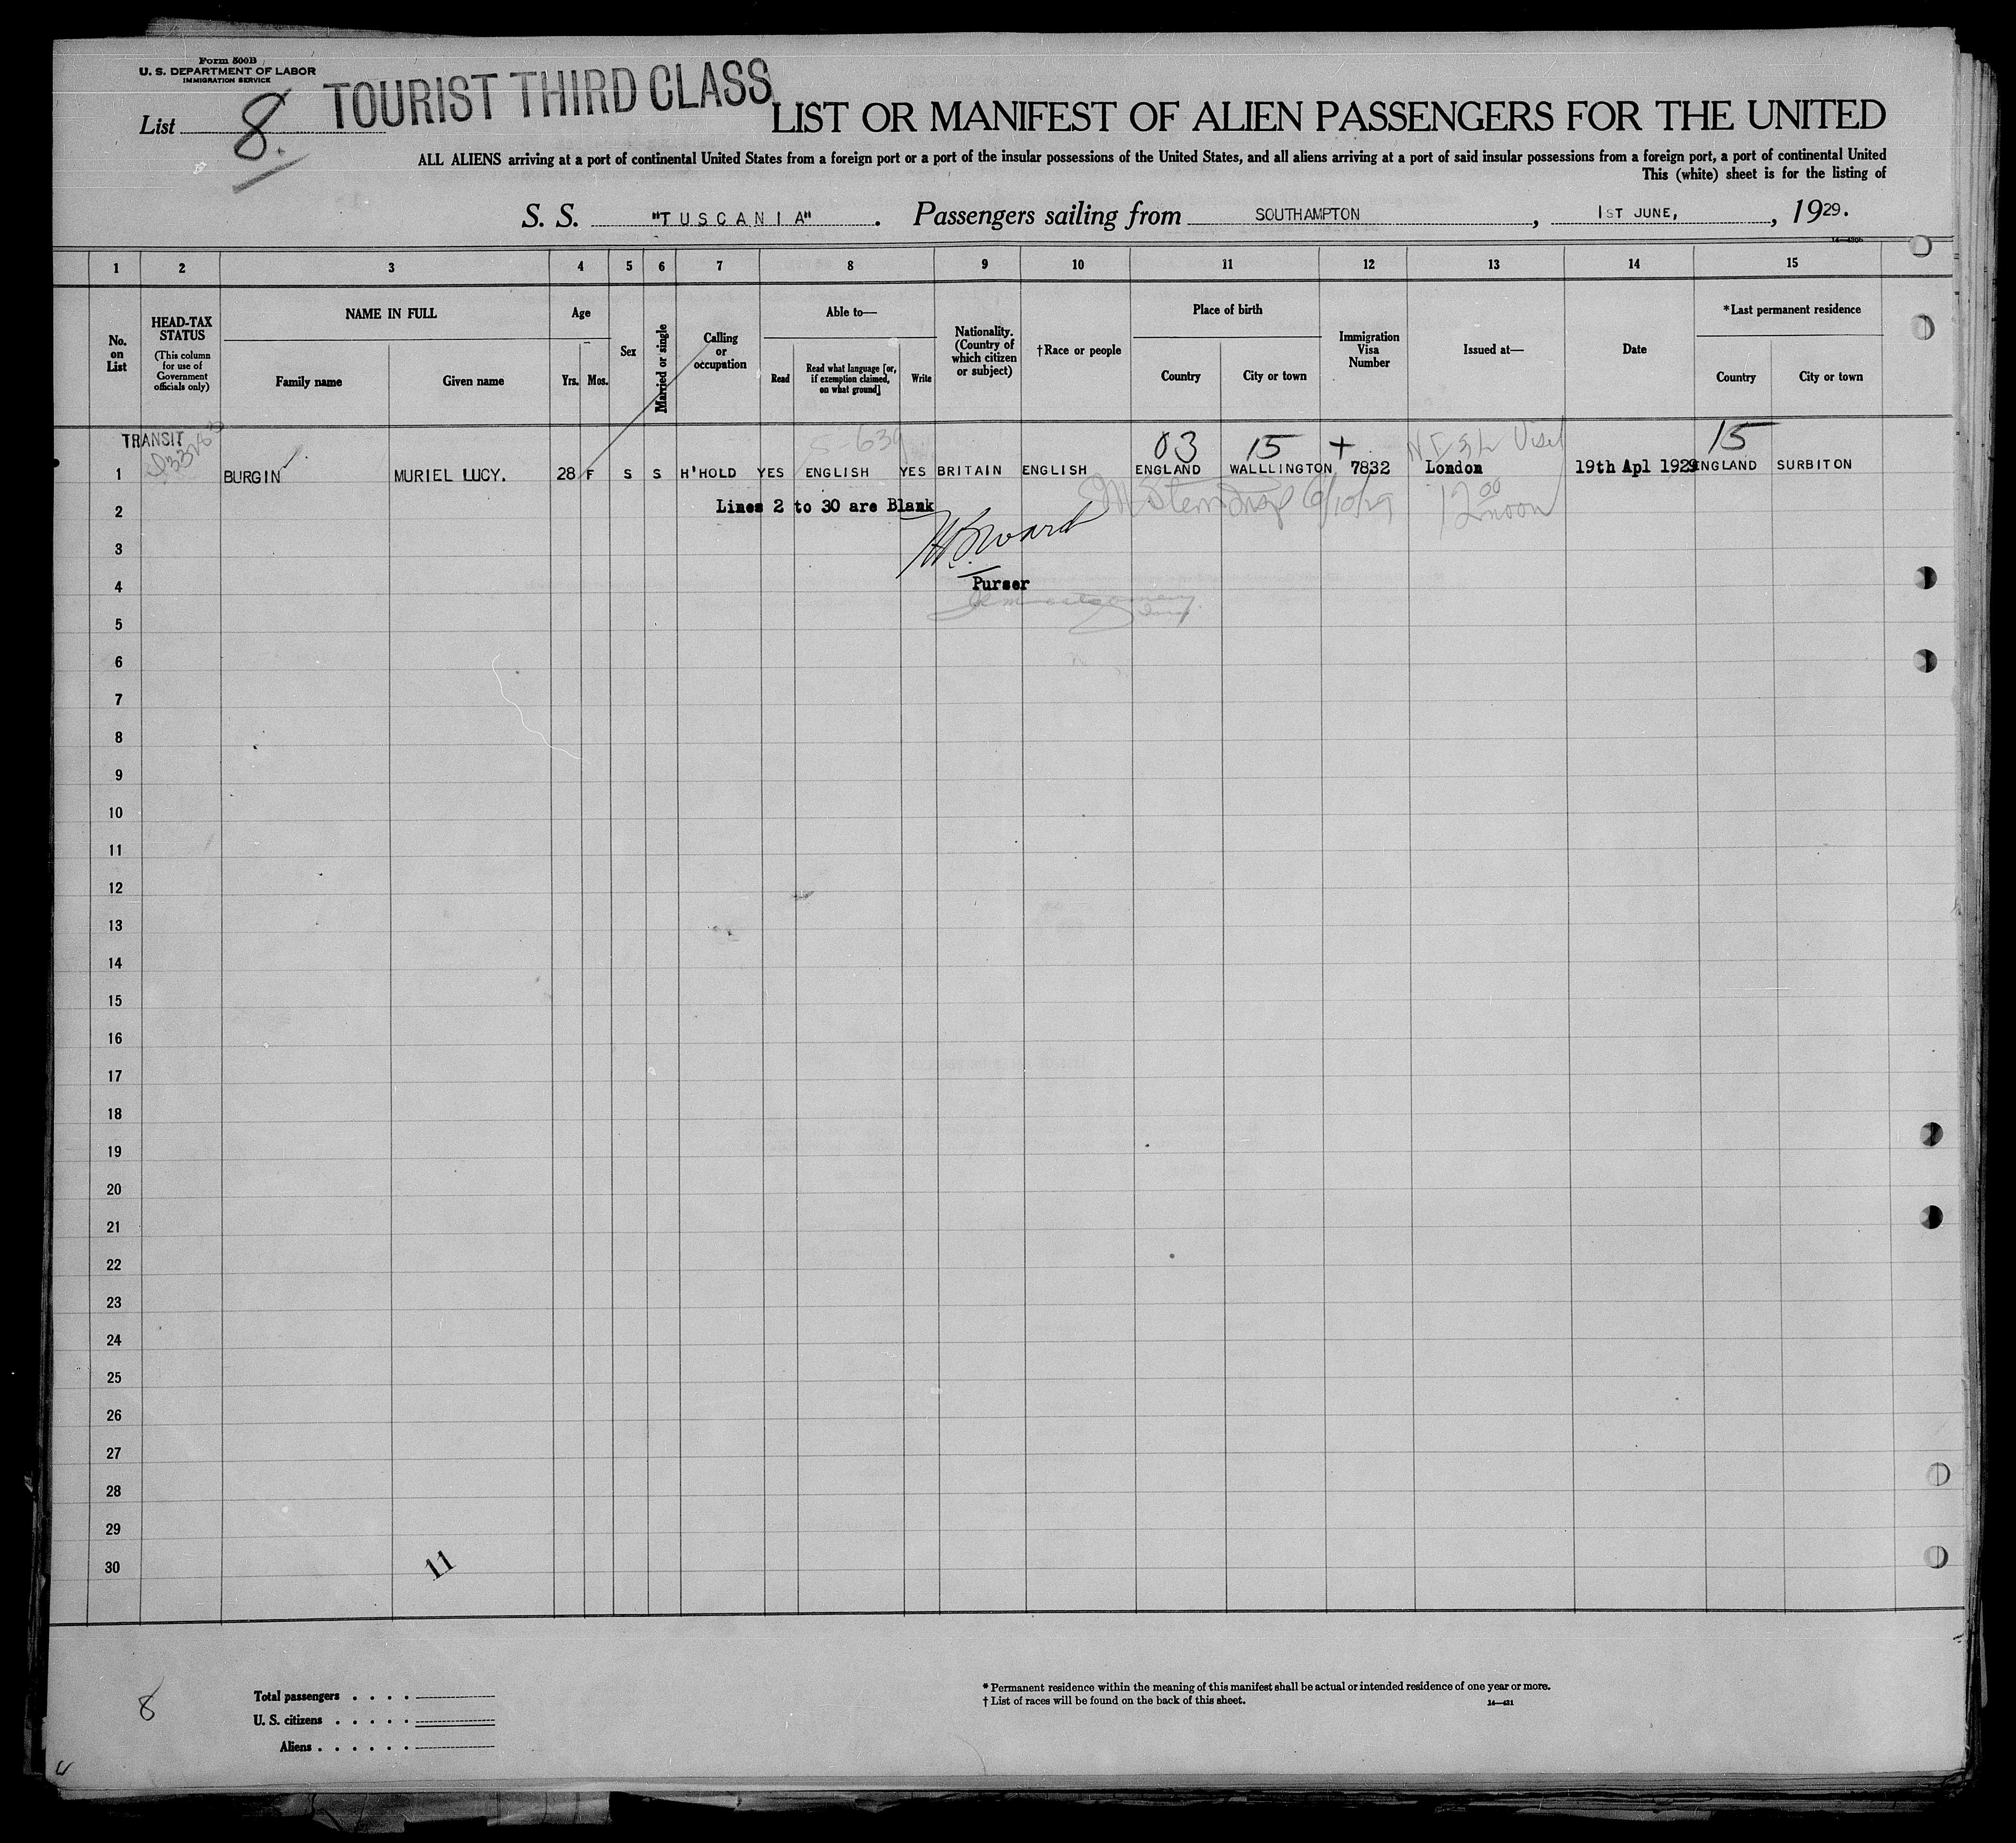 Form 500B
U. S. DEPARTMENT OF LABOR
IMMIGRATION SERVICE
TOURIST THIRD CLASS
List 8.
LIST OR MANIFEST OF ALIEN PASSENGERS FOR THE UNITED
ALL ALIENS arriving at a port of continental United States from a foreign port or a port of the insular possessions of the United States, and all aliens arriving at a port of said insular possessions from a foreign port, a port of continental United
This (white) sheet is for the listing of
S. S. "TUSCANIA". Passengers sailing from SOUTHAMPTON, 1ST JUNE, , 1929.
1 2 3 4 5 6 7 8 9 10 11 12 13 14 15
No. on List
HEAD-TAX STATUS
(This column for use of Government officials only)
NAME IN FULL
Family name Given name
Age
Yrs. Mos.
Sex
Married or single
Calling or occupation
Able to—
Read
Read what language [or, if exemption claimed, on what ground]
Write
Nationality. (Country of which citizen or subject)
†Race or people
Place of birth
Country City or town
Immigration Visa Number
Issued at—
Date
*Last permanent residence
Country City or town
TRANSIT
03 15 + 15
1 BURGIN MURIEL LUCY. 28 F S S H'HOLD YES ENGLISH YES BRITAIN ENGLISH ENGLAND WALLLINGTON 7832 London 19th Apl 1929 ENGLAND SURBITON
2 Lines 2 to 30 are Blank 6/10/29 12 00 noon
3
4 Purser
5
6
7
8
9
10
11
12
13
14
15
16
17
18
19
20
21
22
23
24
25
26
27
28
29
30
11
8
Total passengers . . . .
U. S. citizens . . . . .
Aliens . . . . . .
* Permanent residence within the meaning of this manifest shall be actual or intended residence of one year or more.
† List of races will be found on the back of this sheet.
14—421